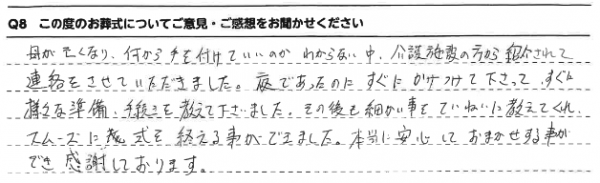 Q8 この度のお葬式についてご意見・ご感想をお聞かせください
母が亡くなり、何から手を付けていいのか わからない中、介護施設の方から紹介されて
連絡をさせていただきました。夜であったのに すぐに かけつけて下さって すぐに
様々な準備、手続きを教えて下さいました。その後も細かい事をていねいに教えてくれ、
スムーズに 式を 終える事ができました。本当に安心して おまかせする事が
でき 感謝しております。